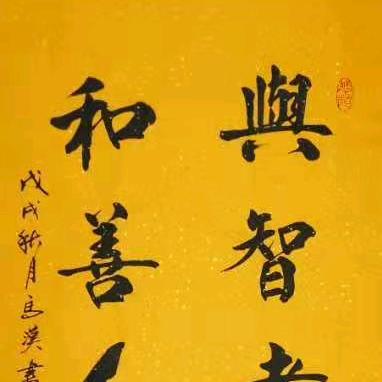 與智者
和善人
戊戌秋月马漢書